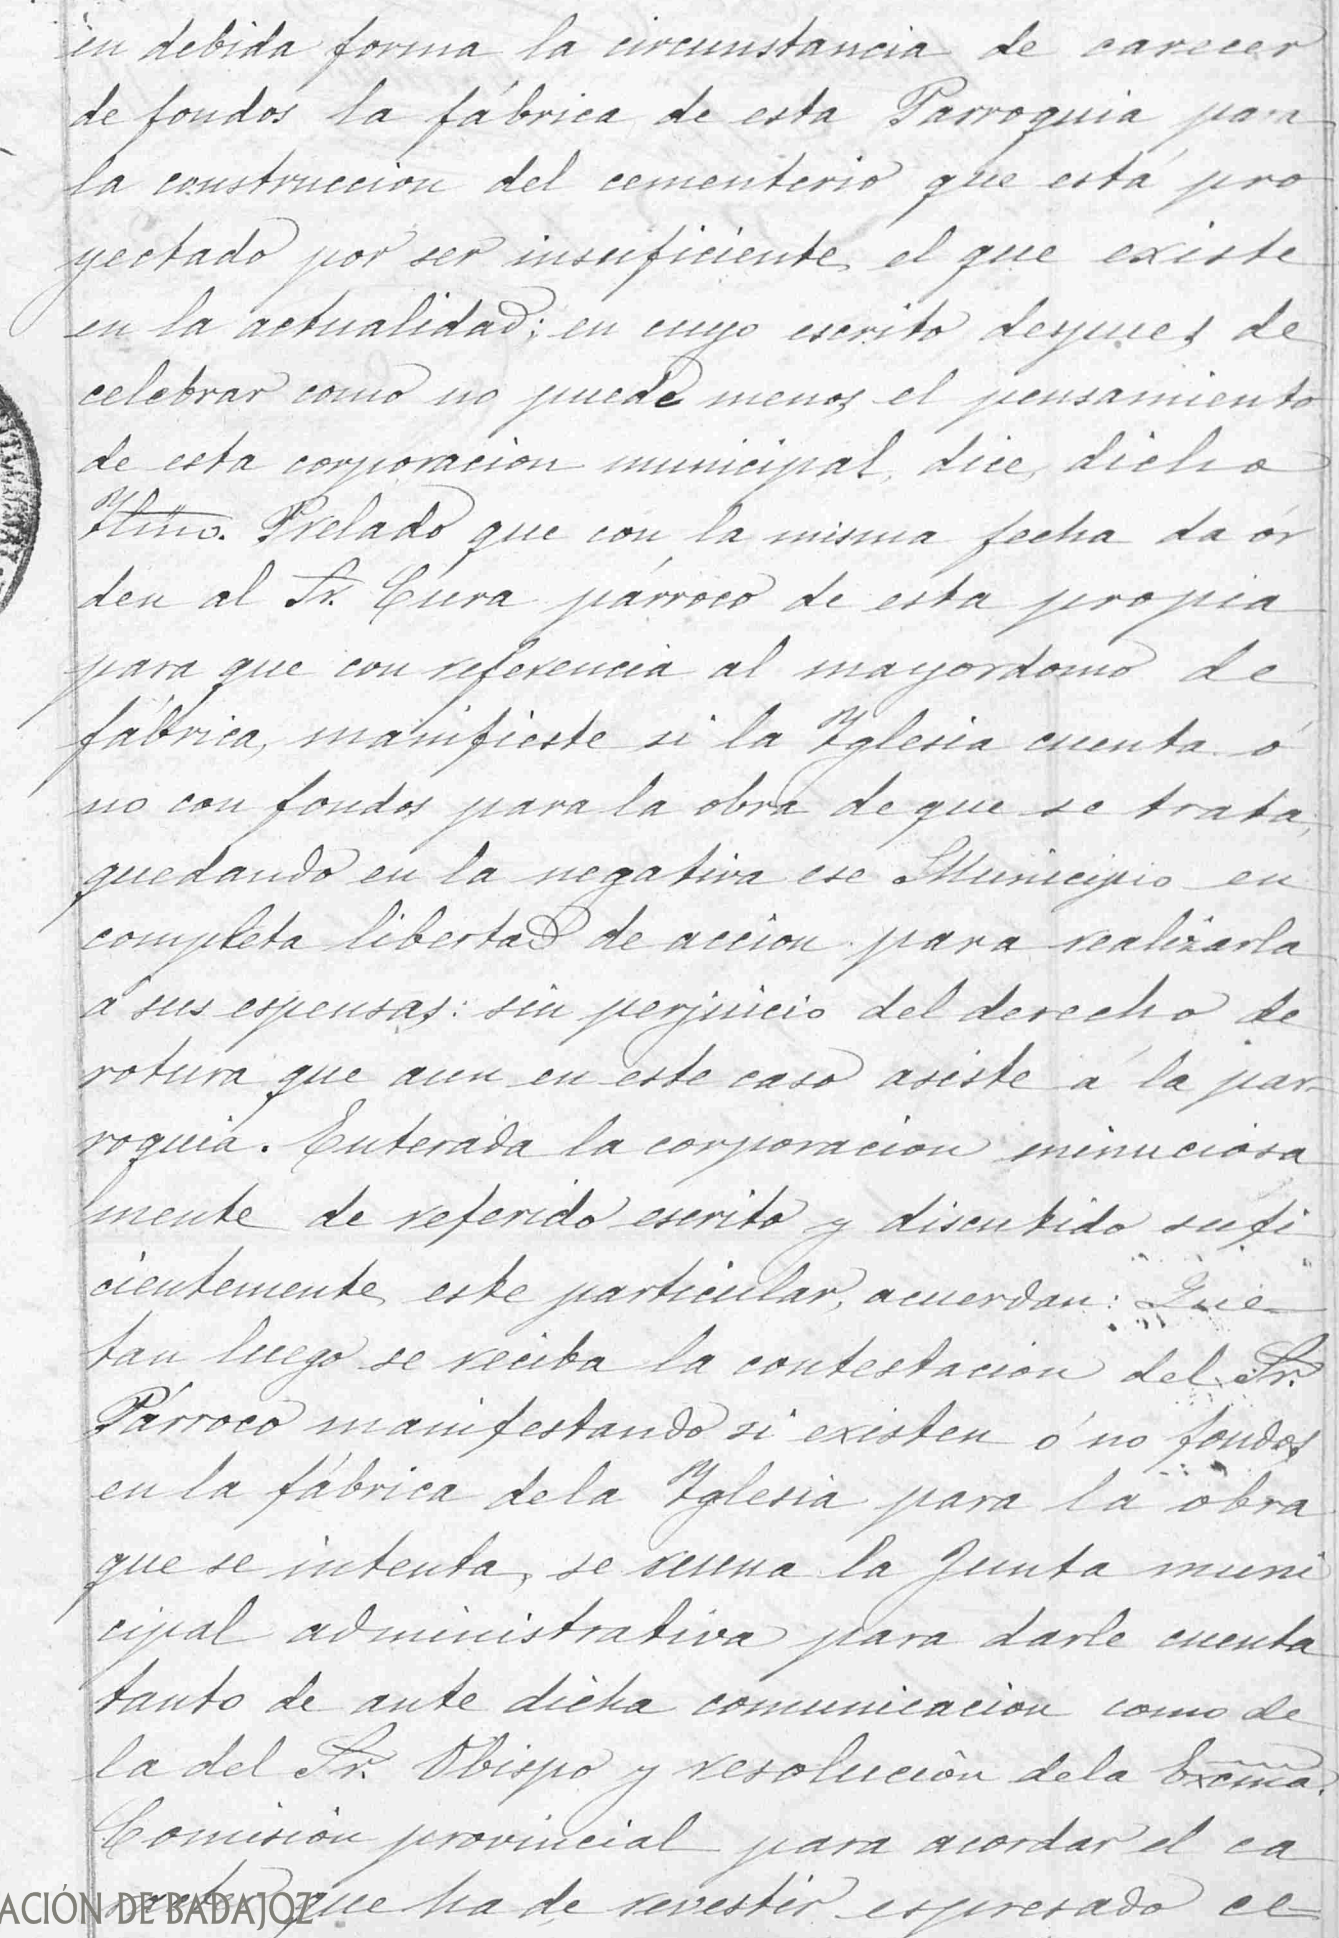 en debida forma la circunstancia de carecer
de fondos la fábrica de esta Parroquia para
la construccion del cementerio que está pro
yectado por ser insuficiente el que existe
en la actualidad; en cuyo escrito despues de
celebrar como no puede menos el pensamiento
de esta corporacion municipal, dice, dicho
Yltmo. Prelado que con la misma fecha da ór
den al Sr. Cura párroco de esta propia
para que con referencia al mayordomo de
fábrica, manifieste si la Yglesia cuenta ó
no con fondos para la obra de que se trata,
quedando en la negativa ese Municipio en
completa libertad de accion para realizarla
á sus espensas: sin perjuicio del derecho de
rotura que aun en este caso asiste á la par-
roquia. Enterada la corporacion minuciosa
mente de referido escrito y discutido sufi
cientemente este particular, acuerdan: Que
tan luego se reciba la contestacion del Sr.
Párroco manifestando si existen ó no fondos
en la fábrica de la Yglesia para la obra
que se intenta, se reuna la Junta muni
cipal administrativa para darle cuenta
tanto de ante dicha comunicacion como de
la del Sr. Obispo y resolución de la Excma.
Comision provincial para acordar el ca
que ha de revestir espresado ce-
ACIÓN DE BADAJOZ